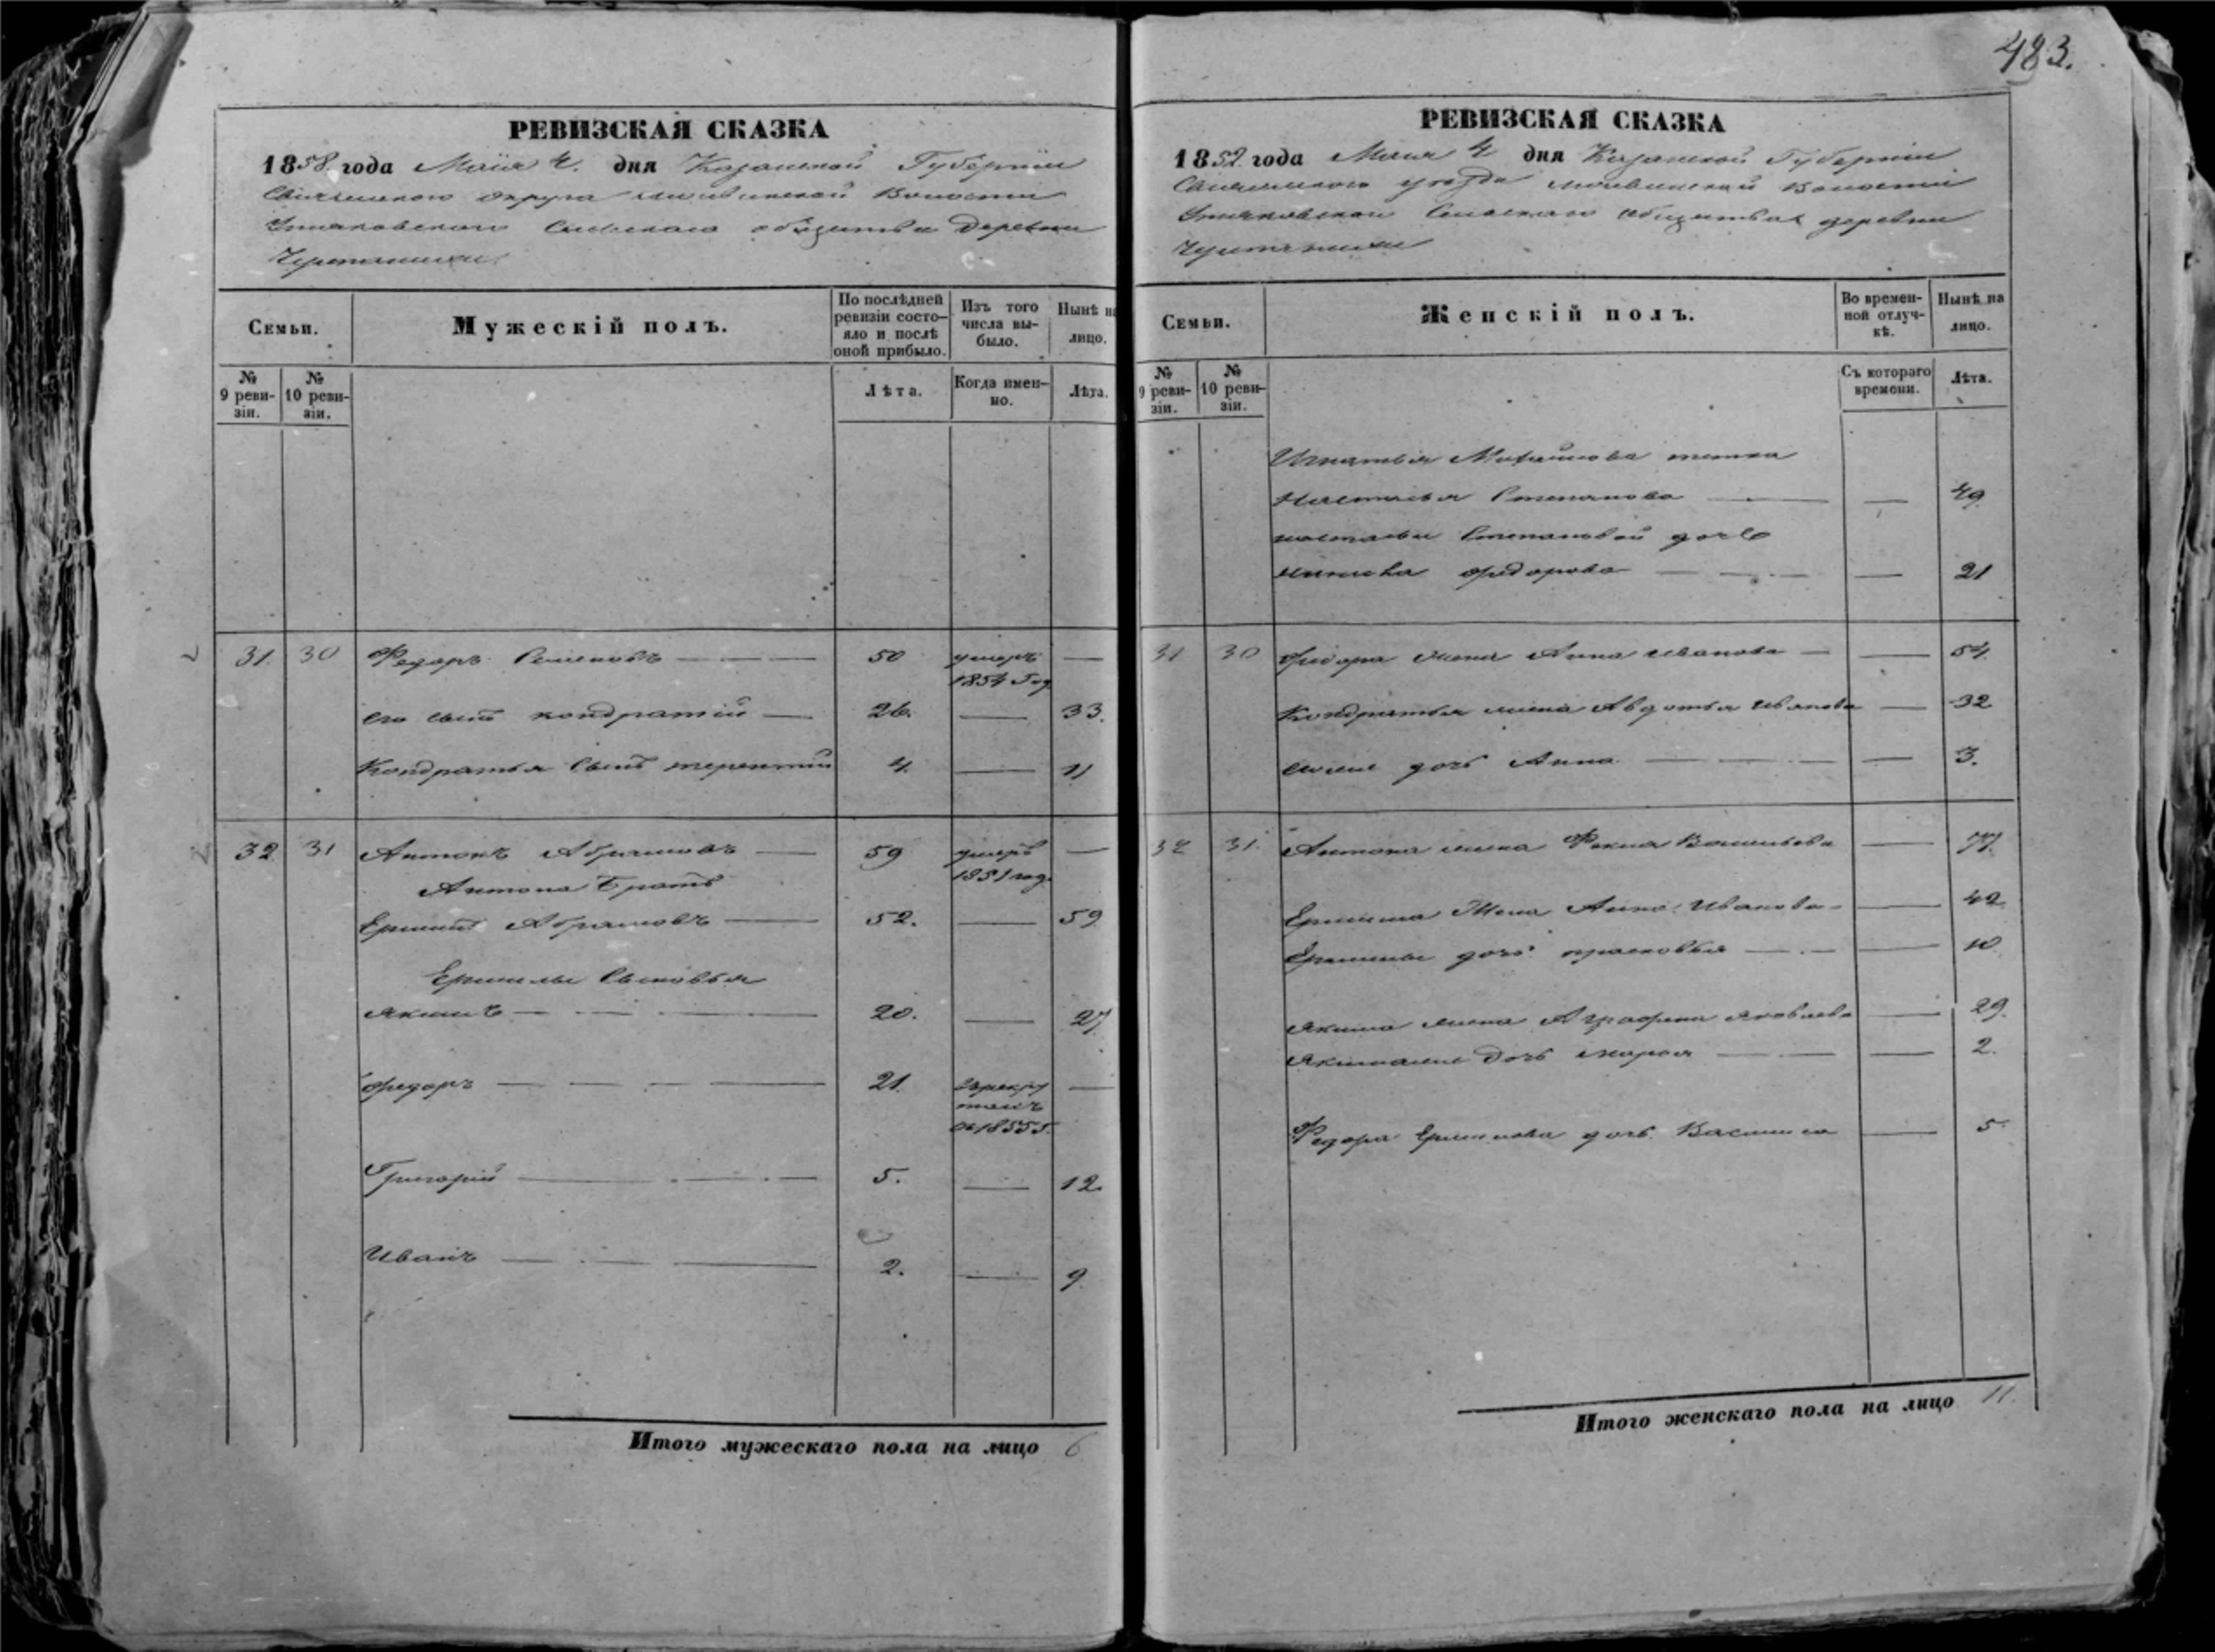 483.
РЕВИЗСКАЯ СКАЗКА
1858 года Маія 4. дня Казанской Губерніи
округа Волости
Сельскаго общества Деревни
Семьи.
Мужескій полъ.
По послѣдней ревизіи состояло и послѣ оной прибыло.
Изъ того числа выбыло.
Нынѣ на лицо.
№ 9 ревизіи.
№ 10 ревизіи.
Лѣта.
Когда именно.
Лѣта.
31. 30 Федоръ Семеновъ — 50 умеръ 1854 год —
его сынъ кондратій — 26. — 33.
Кондратья сынъ терентій 4. — 11
32 31 Антонъ Абрамовъ — 59 умеръ 1851 год. —
Антона Братъ
Абрамовъ — 52. — 59
Ермилы Сыновья
якимъ — 20. — 27
федоръ — 21. —
Григорій — 5. — 12.
Иванъ — 2. — 9.
Итого мужескаго пола на лицо 6
РЕВИЗСКАЯ СКАЗКА
1858 года Маія 4 дня Казанской Губерніи
уѣзда Волости
Сельскаго общества деревни
Семьи.
Женскій полъ.
Во временной отлучкѣ.
Нынѣ на лицо.
№ 9 ревизіи.
№ 10 ревизіи.
Съ котораго времени.
Лѣта.
Игнатья тетка
Настасья Степанова — — 49
настасьи Степановой дочь
федорова — — 21
31 30 федора жена Анна иванова — — 54.
Кондратья жена Авдотья иванова — 32
дочь Анна — — 3.
32 31. Антона жена Васильева — 77.
Жена Анна Иванова — — 42
дочь прасковья — — 10
якима жена Аграфена яковлева — 29.
дочь марья — — 2.
Федора дочь Василиса — 5.
Итого женскаго пола на лицо 11.